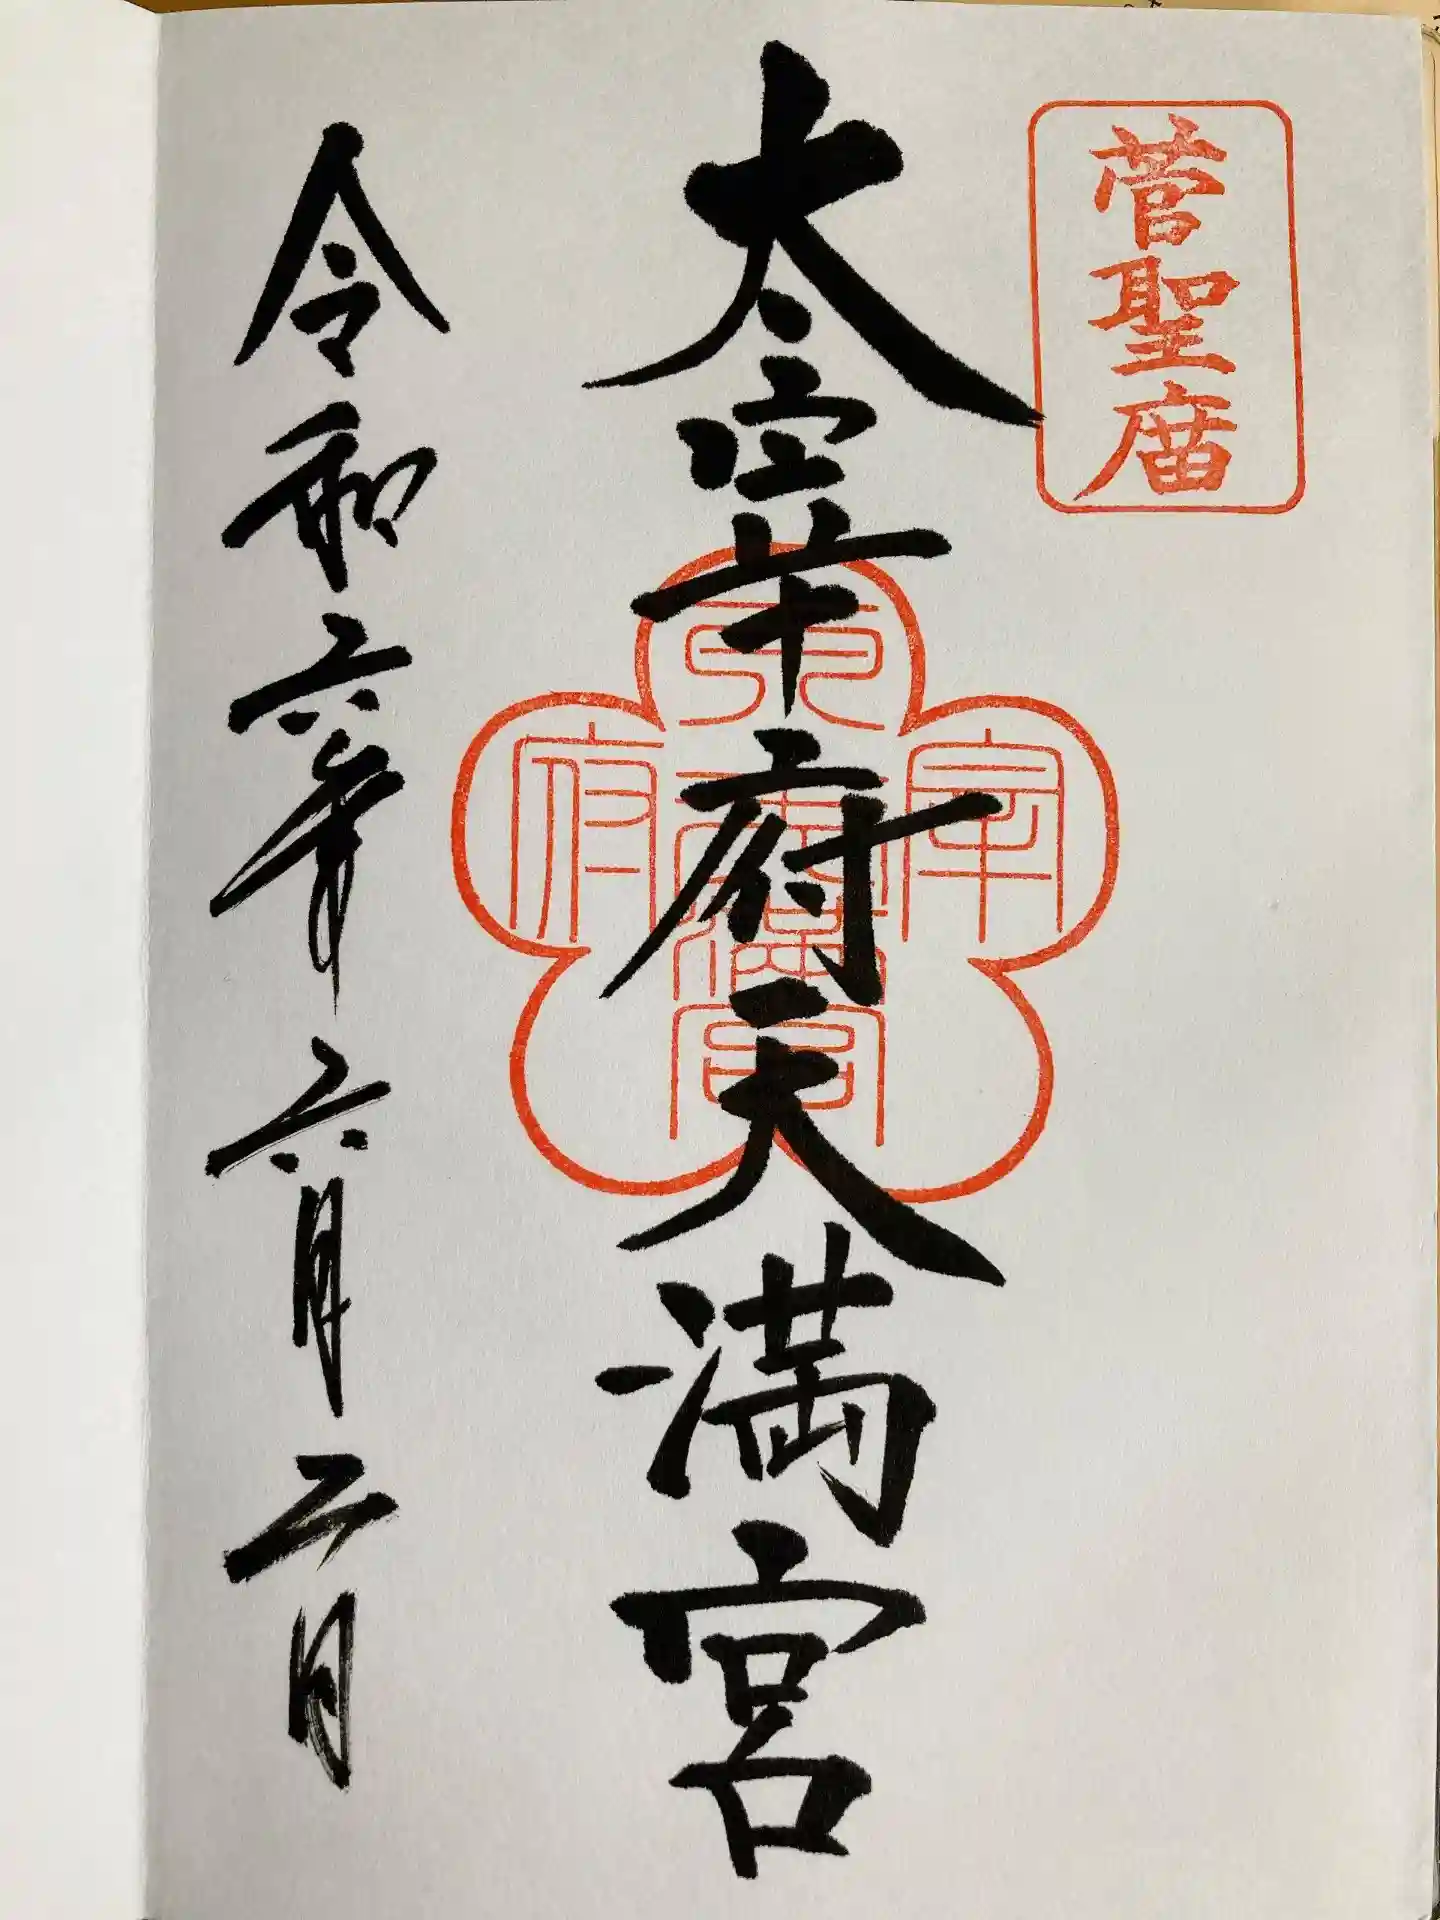 菅聖庿
太宰府天満宮
太宰府天満宮
令和六年六月二日